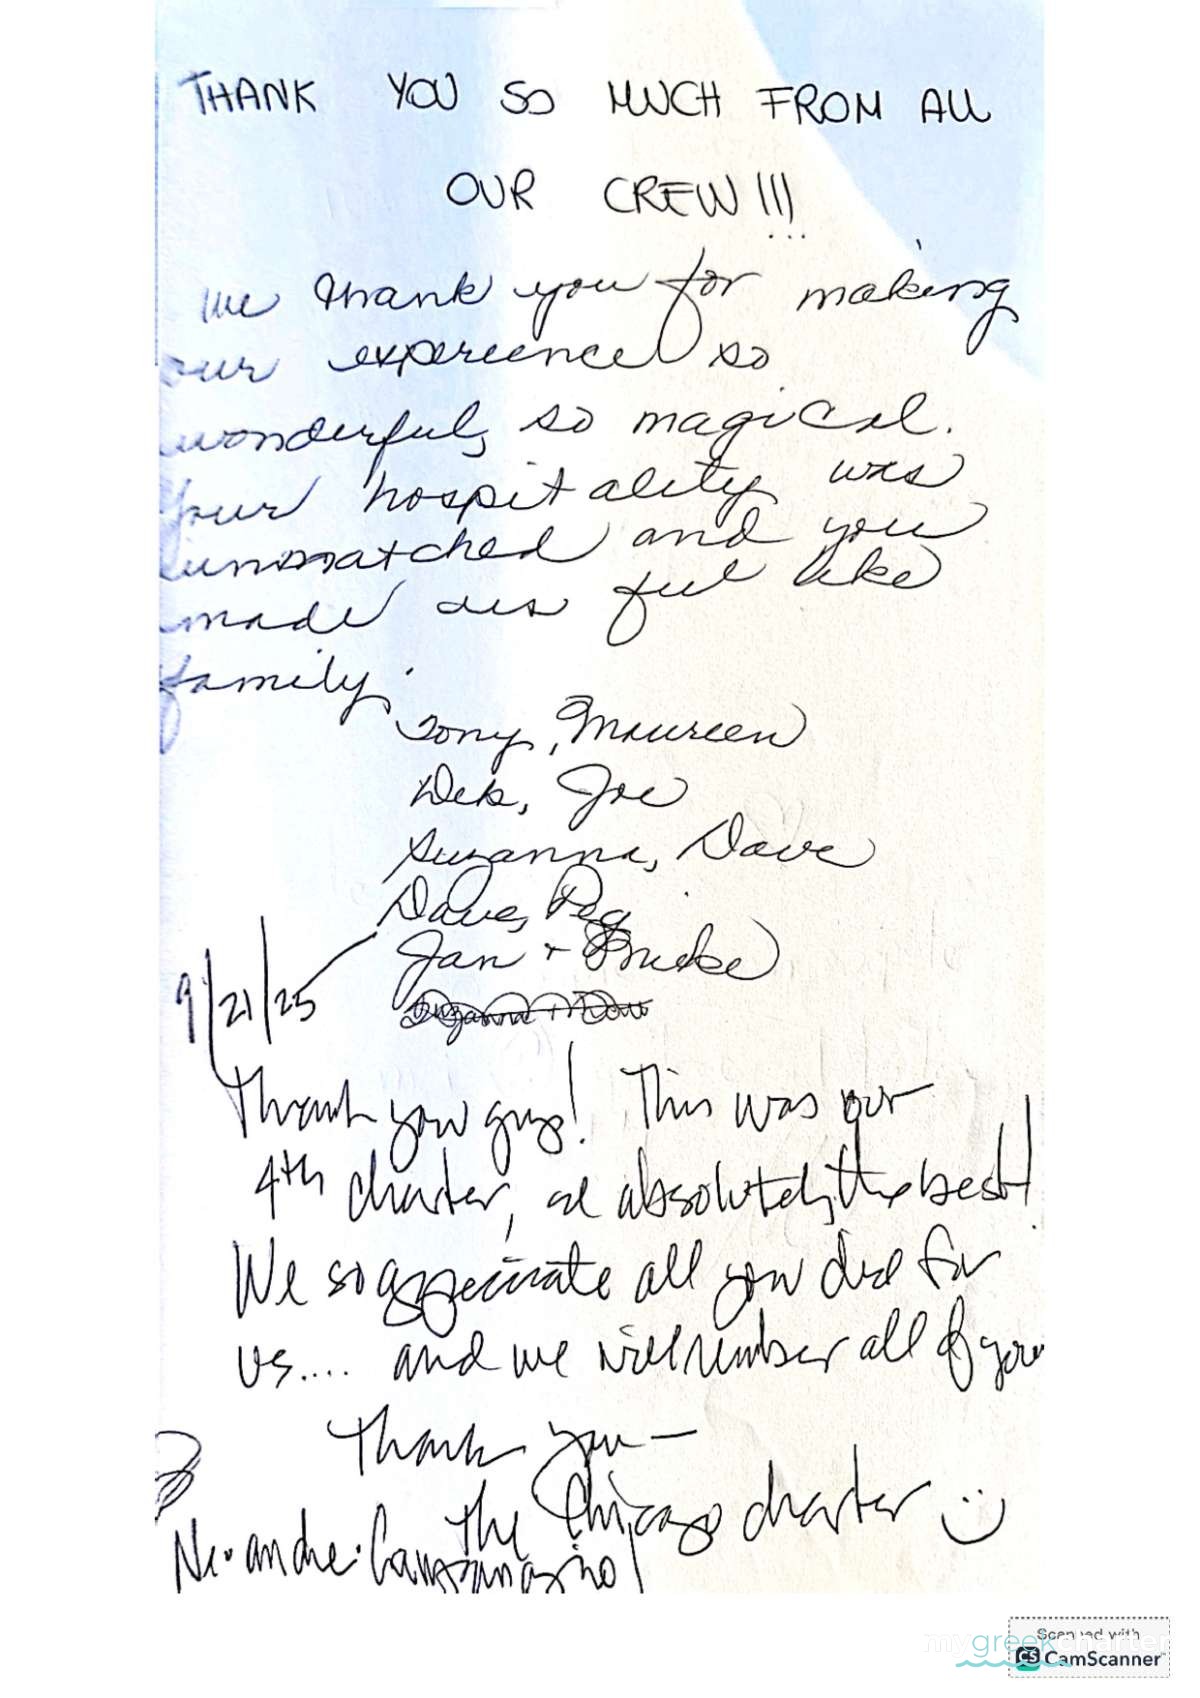 THANK YOU SO MUCH FROM ALL
OUR CREW!!!
We thank you for making
our experience so
wonderful, so magical.
Your hospitality was
unmatched and you
made us feel like
family.
Tony, Maureen
Deb, Joe
Suzanne, Dave
Dave, Peg
Jan +
9/21/25
Suzanne + Dave
Thank you guys! This was our
4th charter, absolutely the best!
We so appreciate all you did for
us.... and we will remember all of you
Thank you —
The Chicago charter
scanned with
mygreekcharter
CS CamScanner